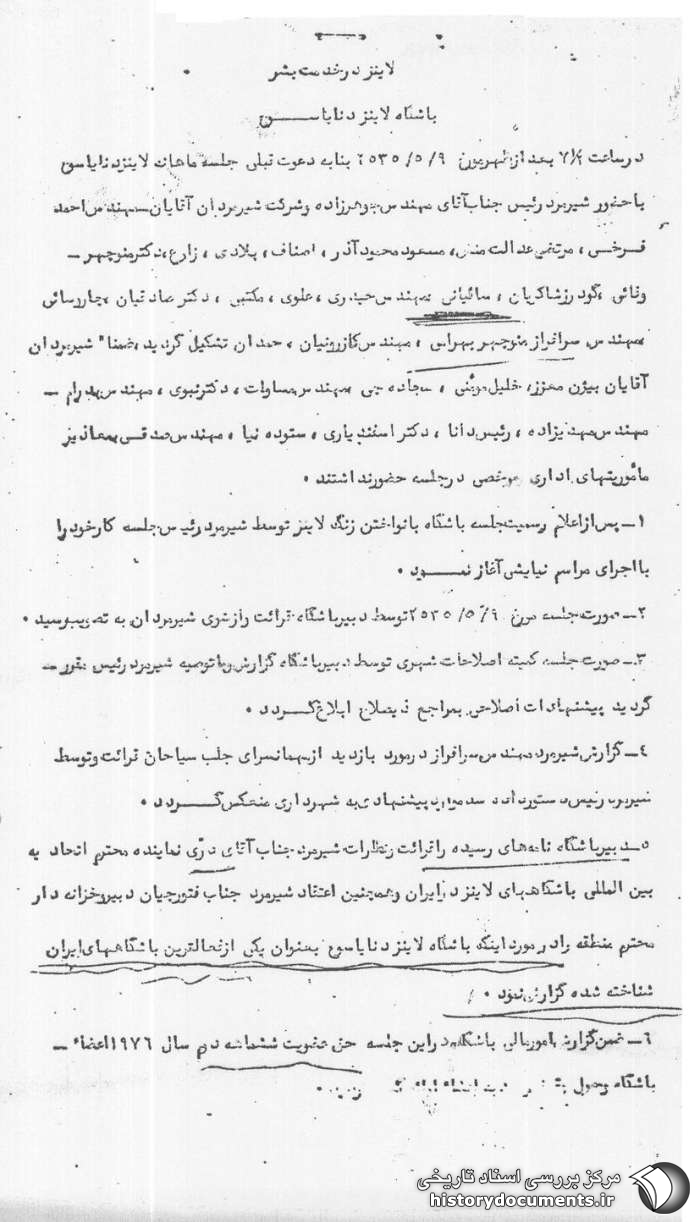 لاینز در خدمت بشر
باشگاه لاینز دنا یاسوج
در ساعت ۷/۵ بعد از ظهر مورخ ۲۵۳۵/۵/۹ بنا به دعوت قبلی جلسه ماهانه لاینز دنا یاسوج
با حضور شیرمرد رئیس جناب آقای مهندس جوهرزاده و شرکت شیرمردان آقایان مهندس احمد
فرخی ، مرتضی عدالت منش ، مسعود محمود آذر ، اصناف ، بیلادی ، زارع ، دکتر منوچهر –
وفائی ، گودرز شاکریان ، سائیانی مهندس حیدری ، علوی ، مکتبی ، دکتر صادقیان ، چاررسائی
مهندس سرافراز منوچهر بهراسی ، مهندس کازرونیان ، حمدان تشکیل گردید ، ضمنا" شیرمردان
آقایان بیژن معزز ، خلیل موبنی ، سجاده چی مهندس مساوات ، دکتر نبوی ، مهندس پدرام –
مهندس مهدیزاده ، رئیس دانا ، دکتر اسفندیاری ، ستوده نیا ، مهندس صدقی بمعاذیر
مأموریتهای اداری مرخصی در جلسه حضور نداشتند .
۱ – پس از اعلام رسمیت جلسه باشگاه با نواختن زنگ لاینز توسط شیرمرد رئیس جلسه کار خود را
با اجرای مراسم نیایش آغاز نمود .
۲ – صورت جلسه مورخ ۲۵۳۵/۵/۹ توسط دبیر باشگاه قرائت و از سوی شیرمردان به تصویب رسید .
۳ – صورت جلسه کمیته اصلاحات شهری توسط دبیر باشگاه گزارش و با توصیه شیرمرد رئیس مقرر –
گردید پیشنهادات اصلاحی بمراجع ذیصلاح ابلاغ گردد .
۴ – گزارش شیرمرد مهندس سرافراز در مورد بازدید از مهمانسرای جلب سیاحان قرائت و توسط
شیرمرد رئیس دستور داده شد موارد پیشنهادی به شهرداری منعکس گردد .
۵ – دبیر باشگاه نامه‌های رسیده را قرائت و نظرات شیرمرد جناب آقای درّی نماینده محترم اتحادیه
بین المللی باشگاههای لاینز در ایران و همچنین اعتقاد شیرمرد جناب فتورچیان دبیر و خزانه دار
محترم منطقه را در مورد اینکه باشگاه لاینز دنا یاسوج بعنوان یکی از فعالترین باشگاههای ایران
شناخته شده گزارش نمود .
۶ – ضمن گزارش امور مالی باشگاه در این جلسه حق عضویت ششماهه دوم سال ۱۹۷۶ اعضاء –
باشگاه وصول
مرکز بررسی اسناد تاریخی
historydocuments.ir